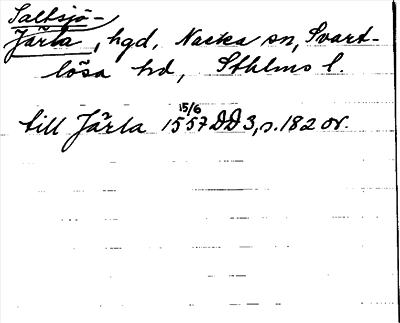 Saltsjö-
Järla, hgd, Nacka sn, Svart-
lösa hd, Sthlms l.
15/6
till Järla 1557 DD 3, s. 182 or.